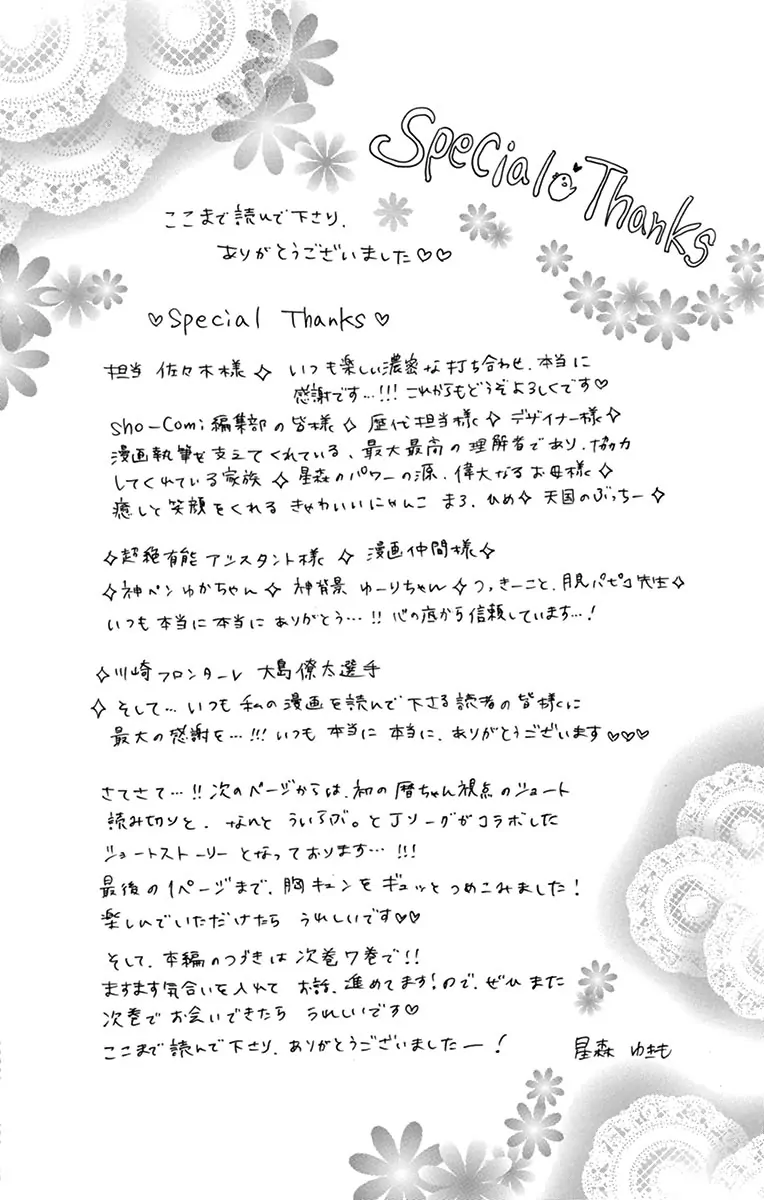 Special Thanks
ここまで読んで下さり、
ありがとうございました♡♡
♡Special Thanks♡
担当 佐々木様✧ いつも楽しい濃密な打ち合わせ、本当に
感謝です…!!! これからもどうぞよろしくです♡
Sho-Comi編集部の皆様✧ 歴代担当様✧ デザイナー様✧
漫画執筆を支えてくれている、最大最高の理解者であり、協力
してくれている家族✧ 星森のパワーの源、偉大なるお母様✧
癒しと笑顔をくれる きゃわいいにゃんこ まろ、ひめ✧ 天国のぶっちー✧
✧超絶有能アシスタント様✧ 漫画仲間様✧
✧神ペンゆかちゃん✧ 神背景 ゆーりちゃん✧つっきーこと、月見パピコ先生✧
いつも本当に本当にありがとう…!! 心の底から信頼しています…!
✧川崎フロンターレ 大島僚太選手
✧そして…いつも私の漫画を読んで下さる読者の皆様に
最大の感謝を…!!! いつも本当に本当に、ありがとうございます♡♡♡
さてさて…!! 次のページからは、初の暦ちゃん視点のショート
読み切りと、なんと ういらぶ。とJリーグがコラボした
ショートストーリーとなっております…!!!
最後の1ページまで、胸キュンをギュッとつめこみました!
楽しんでいただけたら うれしいです♡♡
そして、本編のつづきは次巻7巻で!!
ますます気合いを入れて お話、進めてます!ので、ぜひまた
次巻でお会いできたら うれしいです♡
ここまで読んで下さり、ありがとうございましたー!
星森 ゆきも